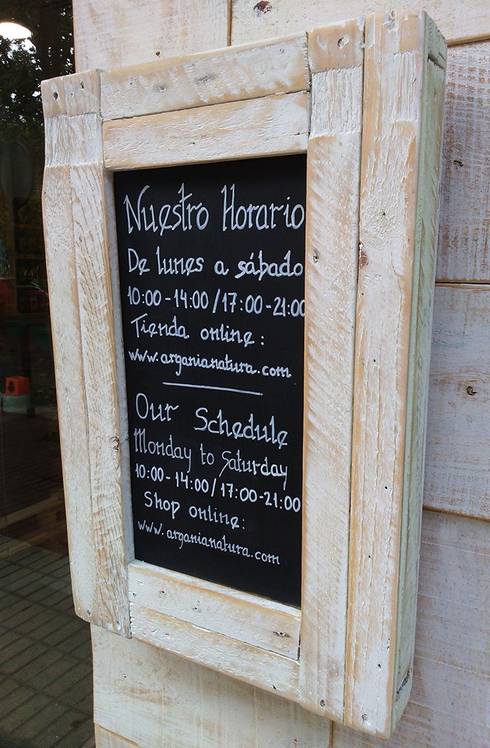 Nuestro Horario
De lunes a sábado
10:00-14:00/17:00-21:00
Tienda online:
www.arganianatura.com
Our Schedule
Monday to Saturday
10:00-14:00/17:00-21:00
Shop online:
www.arganianatura.com